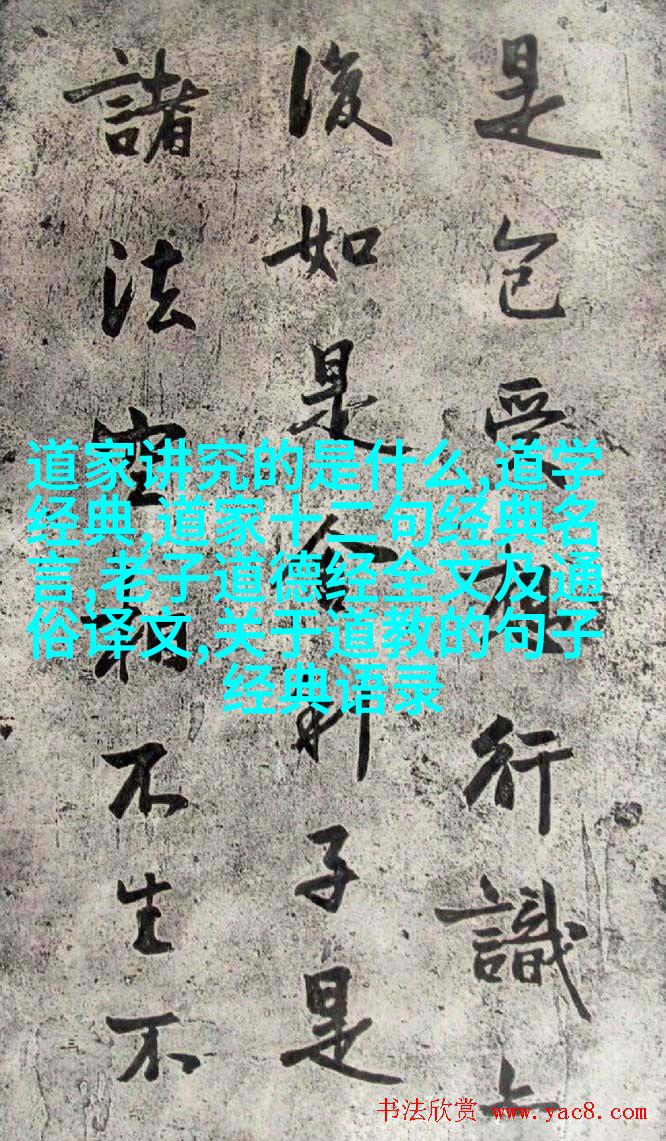 是色受行識
復如是舍利子是
諸法空相不生不
道家讲究的是什么,道学
经典,道家十二句经典名
言,老子道德经全文及通
俗译文,关于道教的句子
经典语录
书法欣赏 www.yac8.com